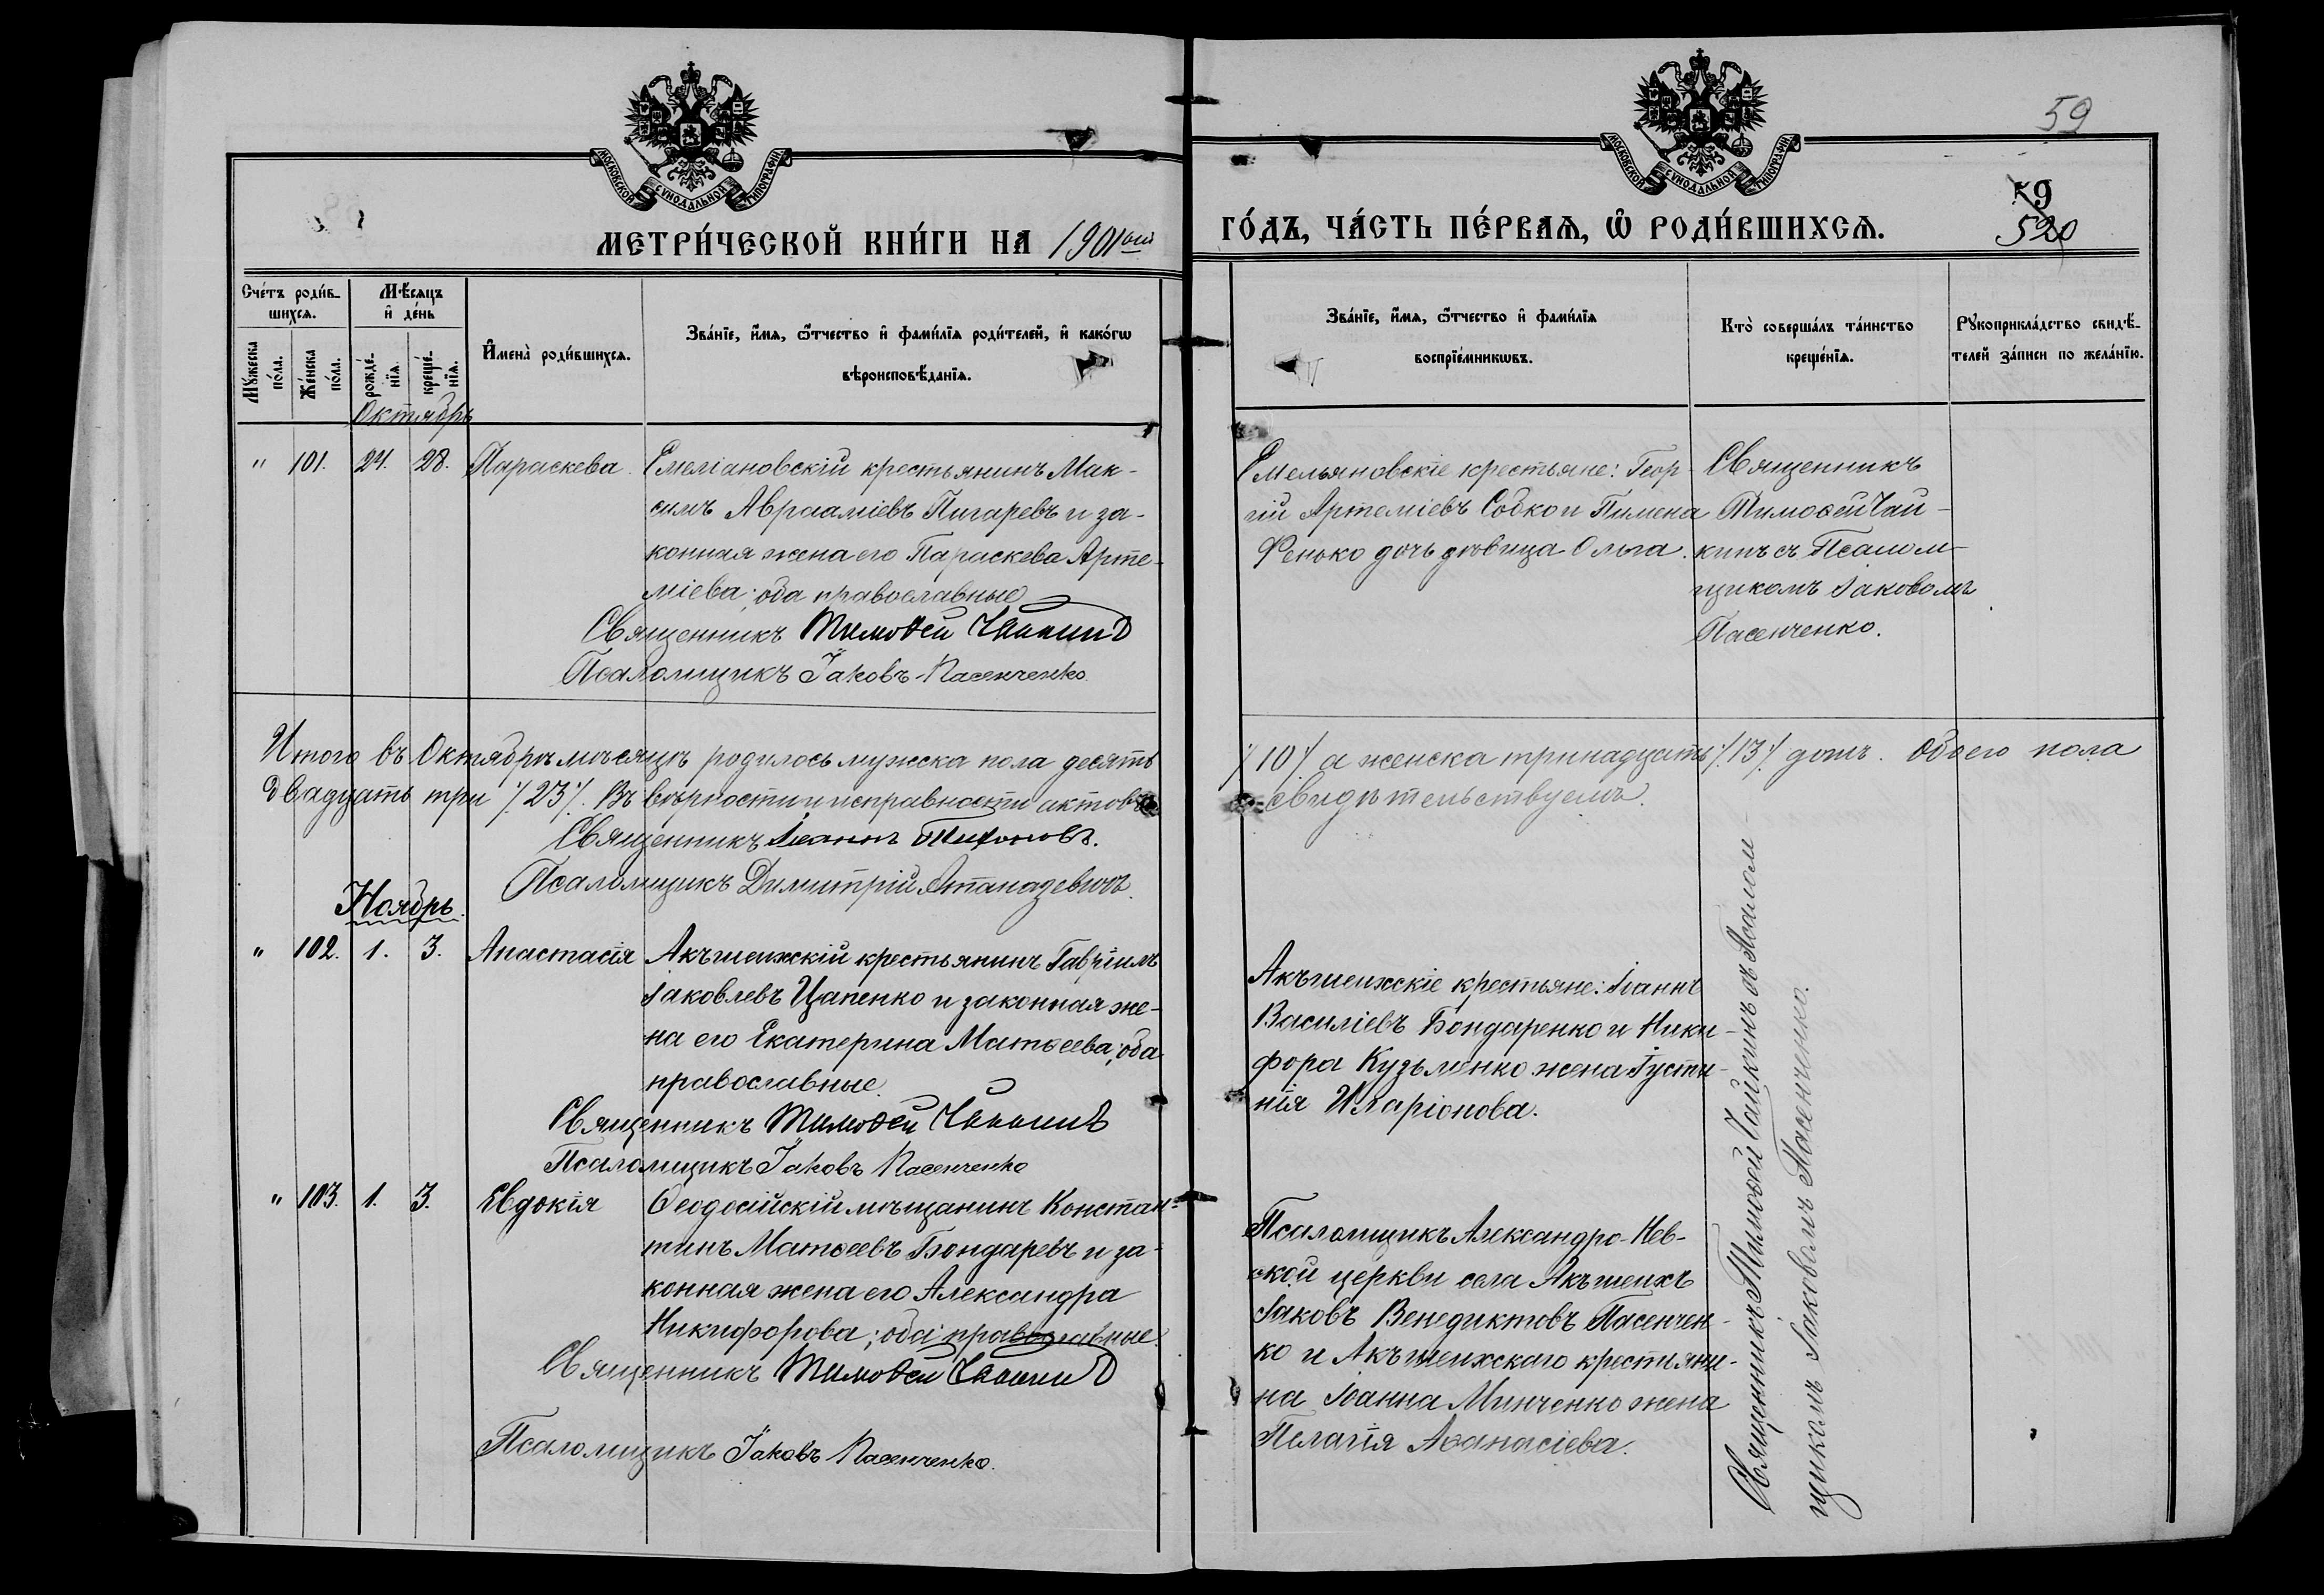 59
59
520
МОСКОВСКОЙ СѴНОДАЛЬНОЙ ТИПОГРАФІИ
МОСКОВСКОЙ СѴНОДАЛЬНОЙ ТИПОГРАФІИ
МЕТРИ́ЧЕСКОЙ КНИ́ГИ НА 1901ый
ГО́ДЪ, ЧА́СТЬ ПЕ́РВАѦ, Ѽ РОДИ́ВШИХСѦ.
Сче́тъ роди́в-
шихсѧ.
Мꙋ́жеска
по́ла.
Же́нска
по́ла.
Мѣ́сѧцъ
и҆ де́нь
рожде́-
нїѧ.
креще́-
нїѧ.
И҆мена̀ роди́вшихсѧ.
Зва́нїе, и҆́мѧ, ѻ҆́тчество и҆ фами́лїѧ роди́телей, и҆ како́гѡ
вѣроисповѣ́данїѧ.
Зва́нїе, и҆́мѧ, ѻ҆́тчество и҆ фами́лїѧ
воспрїе́мникѡвъ.
Кто̀ соверша́лъ та́инство
креще́нїѧ.
Рꙋкоприкла́дство свидѣ́-
телей за́писи по жела́нїю.
Октябрь
" 101. 24. 28. Параскева
Емеліановскій крестьянинъ Мак-
симъ Авраамiевъ Пигаревъ и за-
конная жена его Параскева Арте-
міева; оба православные
Священникъ Тимоѳей Чайкинъ
Псаломщикъ Іаковъ Пасенченко
Емельяновскіе крестьяне: Геор-
гій Артеміевъ Собко и Пимена
Фенько дочь дѣвица Ольга.
Священникъ
Тимоѳей Чай-
кинъ съ Псалом-
щикомъ Іаковомъ
Пасенченко.
Итого въ Октябрѣ мѣсяцѣ родилось мужска пола десять
/.10/. а женска тринадцать /.13/. душъ. Обоего пола
двадцать три /.23/. Въ вѣрности и исправности актовъ
свидѣтельствуемъ.
Священникъ Іоаннъ Тихоновъ.
Псаломщикъ Димитрій Атанадевичъ
Ноябрь.
" 102. 1. 3. Анастасія
Акъшеихскій крестьянинъ Гавріилъ
Іаковлевъ Цапенко и законная же-
на его Екатерина Матѳеева, оба
православные.
Священникъ Тимоѳей Чайкинъ
Псаломщикъ Іаковъ Пасенченко
Акъшеихскіе крестьяне: Іоаннъ
Василіевъ Бондаренко и Ники-
фора Кузьменко жена Іусти-
нія Иларіонова.
" 103. 1. 3. Евдокія
Ѳеодосійскій мѣщанинъ Констан-
тинъ Матѳеевъ Бондаревъ и за-
конная жена его Александра
Никифорова; оба православные.
Священникъ Тимоѳей Чайкинъ
Псаломщикъ Іаковъ Пасенченко.
Псаломщикъ Александро-Нев-
ской церкви села Акъшеихъ
Іаковъ Венедиктовъ Пасенчен-
ко и Акъшеихскаго крестьяни-
на Іоанна Минченко жена
Пелагія Аѳанасіева.
Священникъ Тимоѳей Чайкинъ съ Псалом-
щикомъ Іаковомъ Пасенченко.